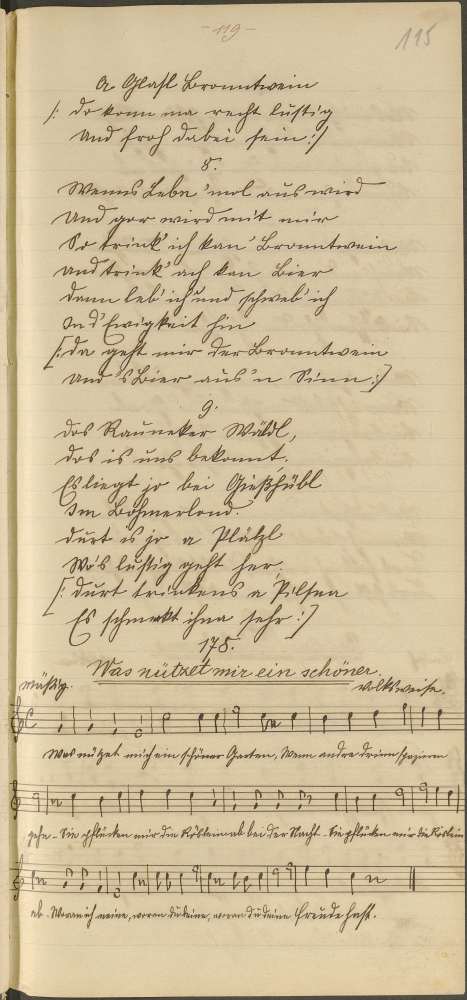 - 119 -
115
A Glasl Bronntwein
/: do konn ma recht lustig
und froh dabei sein :/
8.
Wenns Lebn 'mol aus wird
Und gor wird mit mir
So trink' ich kan' Bronntwein
und trink' ach kan Bier
dann leb' ich und schweb' ich
In d'Ewigkeit hin
[: da geht mir der Bronntwein
und 's Bier aus'n Sinn :]
9.
Das Rauneker Wäldl,
das is uns bekonnt.
Es liegt jo bei Gießhübl
Im Böhmerlond.
durt is jo a Plätzl
Wo's lustig geht her.
[: durt trinkens a Pilsna
Es schmeckt ihna sehr :]
175.
Was nützet mir ein schöner.
Mäßig.
Volksweise.
Was nützet mich ein schöner Garten, Wenn andre drinn spazieren
gehn - Sie pflücken mir die Röslein ab bei der Nacht - Sie pflücken mir die Röslein
ab. Woran ich meine, woran du deine, woran du deine Freude hast.